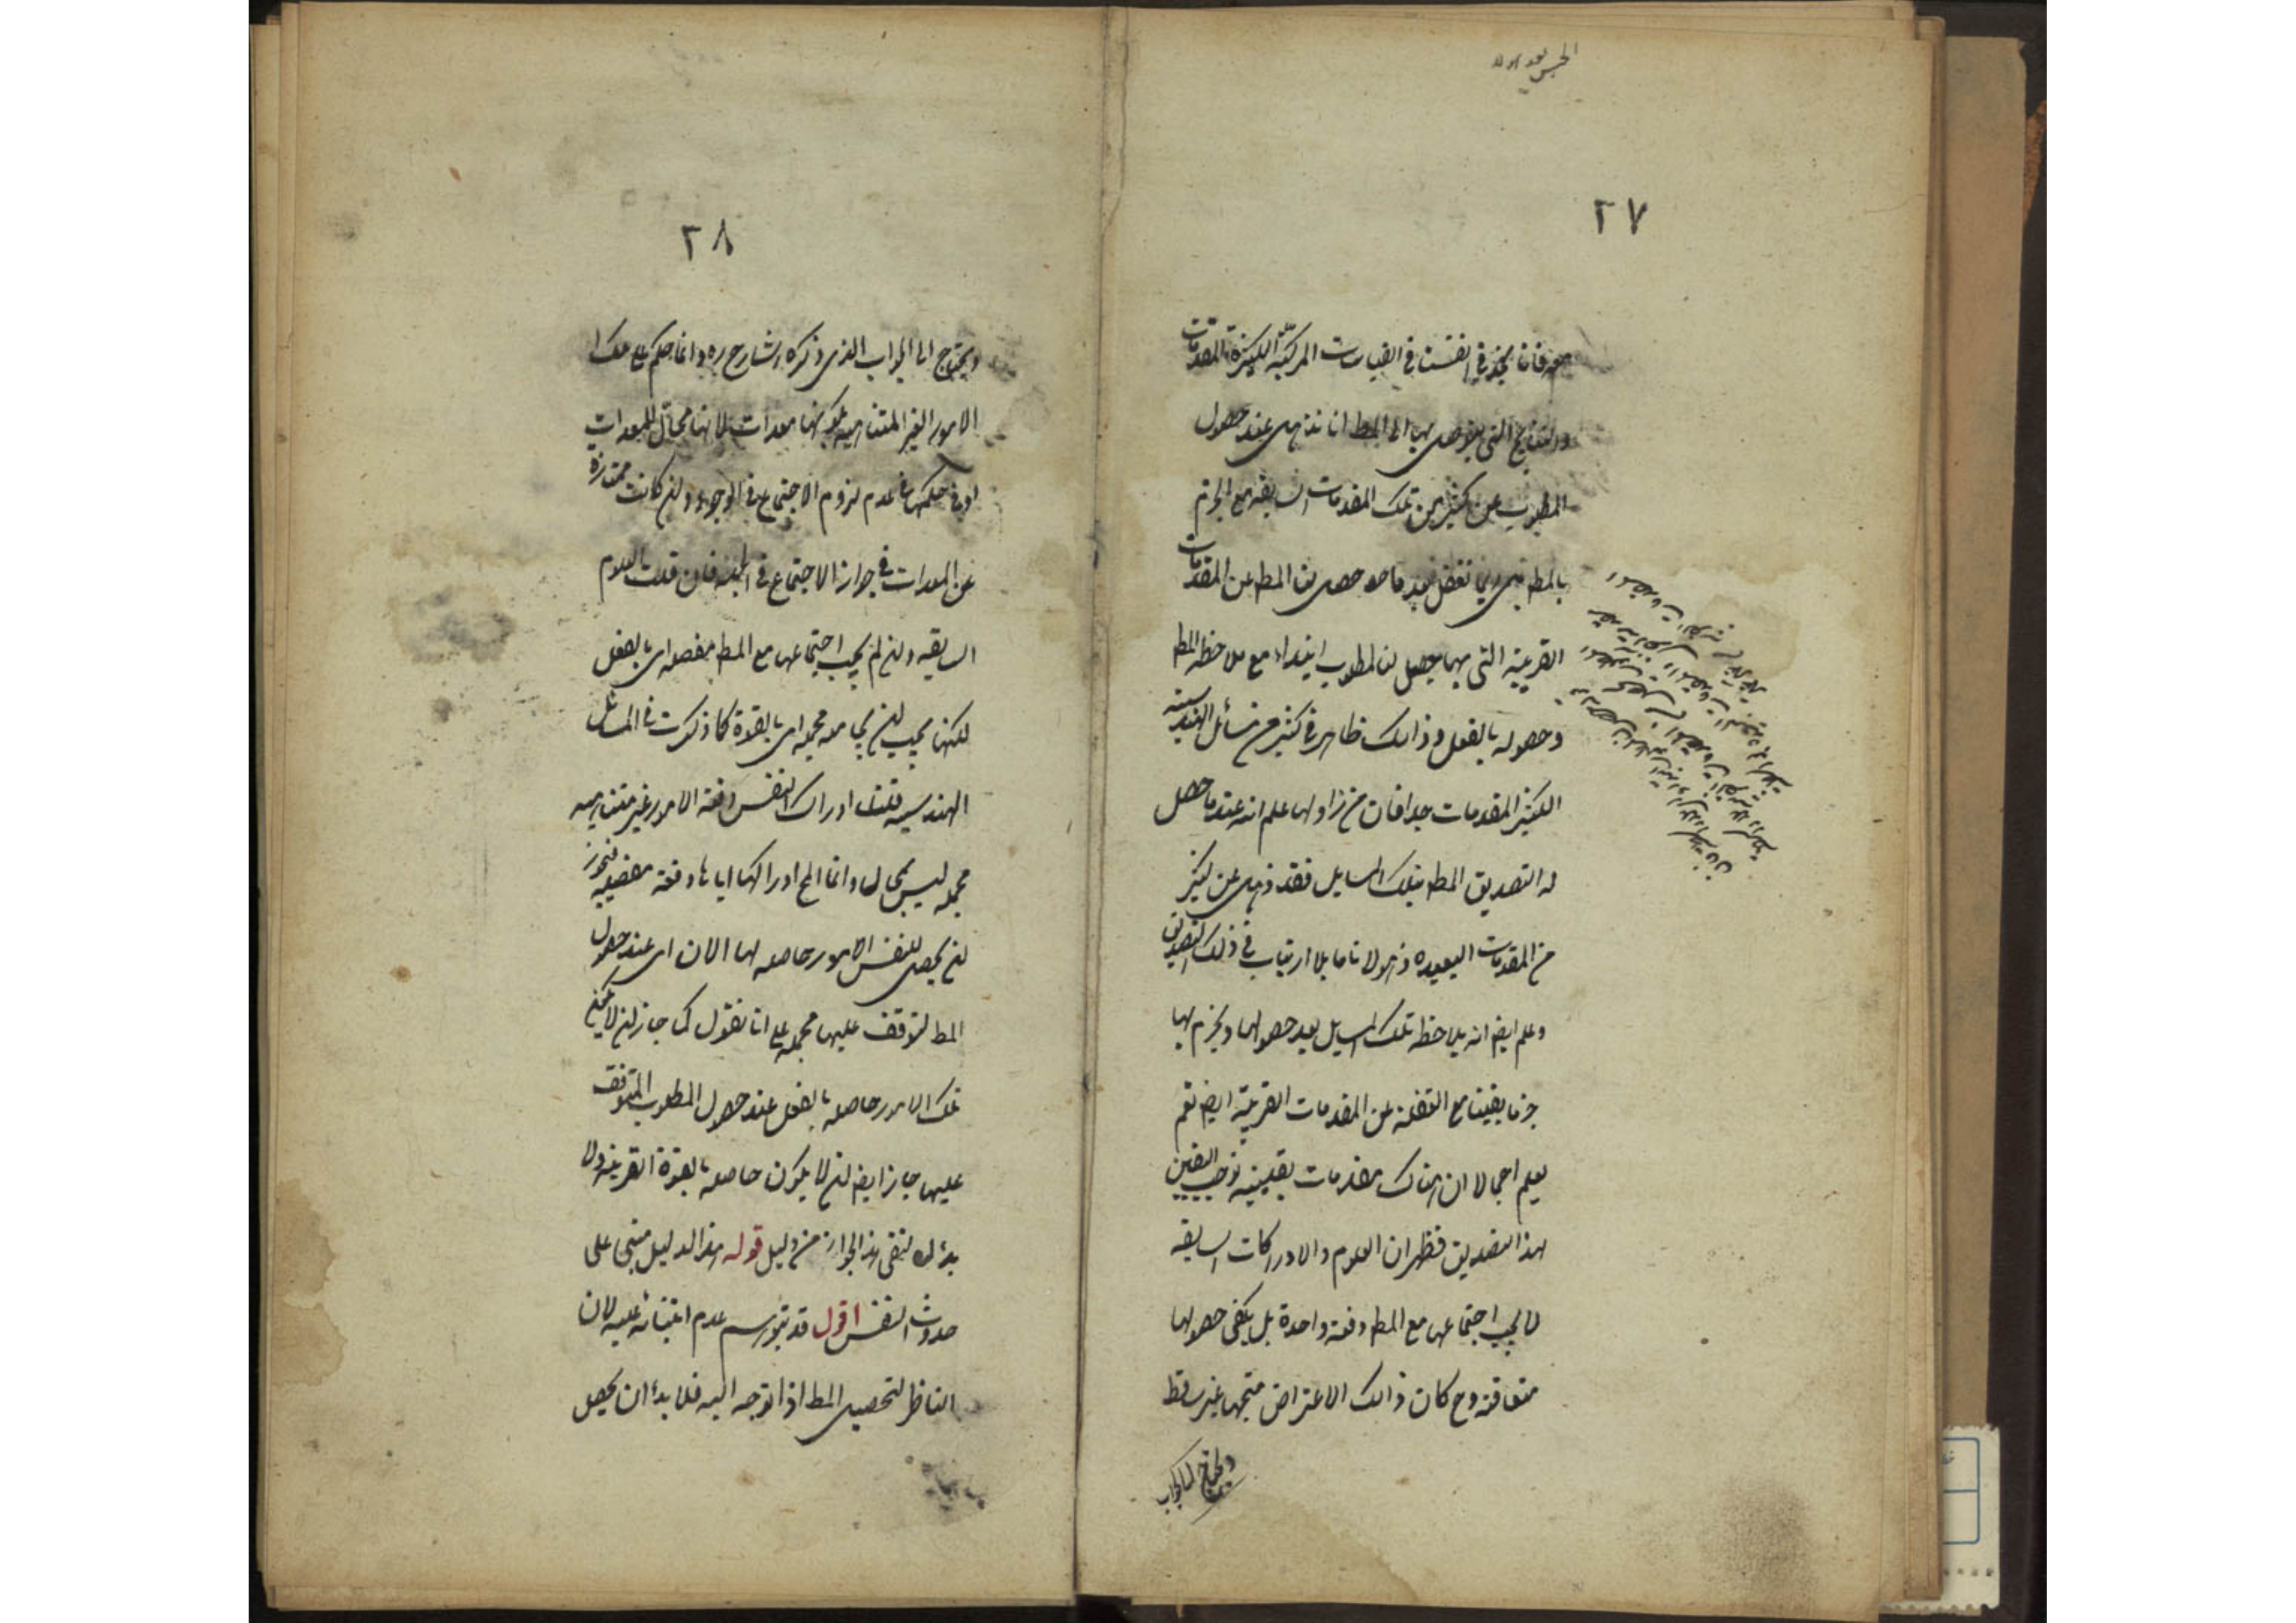 ٢٧
معه فانا نجد في انفسنا في القياسات المركبة الكثيرة المقدمات
والنتايج التى يتوصل بها الى المط انا نذهل عند حصول
المطلوب عن كثير من تلك المقدمات السابقه مع الجزم
بالمط بل ربما نغفل بعد ما حصل لنا المط عن المقدمات
القريبة التى بها يحصل لنا المطلوب ابتداء مع ملاحظة المط
وحصوله بالفعل وذلك ظاهر في كثير من مسائل الهندسية
الكثير المقدمات جدا فان من زاولها علم انه عند ما حصل
له التصديق المط بتلك المسايل فقد ذهل عن كثير
من المقدمات البعيده ذهولا تاما بلا ارتياب في ذلك التصديق
وعلم ايض انه يلاحظ تلك المسايل بعد حصولها ويجزم بها
جزما يقينا مع الغفلة عن المقدمات القريبة ايض نعم
يعلم اجمالا ان هناك مقدمات يقينية توجب اليقين
بهذا التصديق فظهر ان العلوم والادراكات السابقه
لا يجب اجتماعها مع المط دفعة واحدة بل يكفى حصولها
متعاقبة وح كان ذلك الاعتراض متجها غير ساقط
ويحتاج الى الجواب
٢٨
ويحتاج الى الجواب الذى ذكره الشارح ره وانما حكم على هذا
الامور الغير المتناهيه بكونها معدات لانها محال للمعدات
او في حكمها في عدم لزوم الاجتماع في الوجود وان كانت ممتازة
عن المعدات في جواز الاجتماع في الجملة فان قلت العلوم
السابقه وان لم يجب اجتماعها مع المط مفصله اى بالفعل
لكنها يجب ان يجامعه مجمله اى بالقوة كما ذكرت في المسائل
الهندسيه قلنا ادراك النفس دفعة الامور غير متناهيه
مجمله ليس بمحال وانما المح ادراكها اياها دفعة مفصله فيجوز
ان يحصل للنفس الامور حاصله لها الان اى عند حصول
المط المتوقف عليها مجمله على انا نقول كما جاز ان لا يكون
تلك الامور حاصله بالفعل عند حصول المطلوب المتوقف
عليها جاز ايض ان لا يكون حاصله بالقوة القريبه ولا
بد لك لنفى هذا الجواز من دليل قوله هذا الدليل مبنى على
حدوث النفس اقول قد يتوهم عدم ابتنائه عليه لان
الناظر لتحصيل المط اذا توجه اليه فلا بد ان يحصل